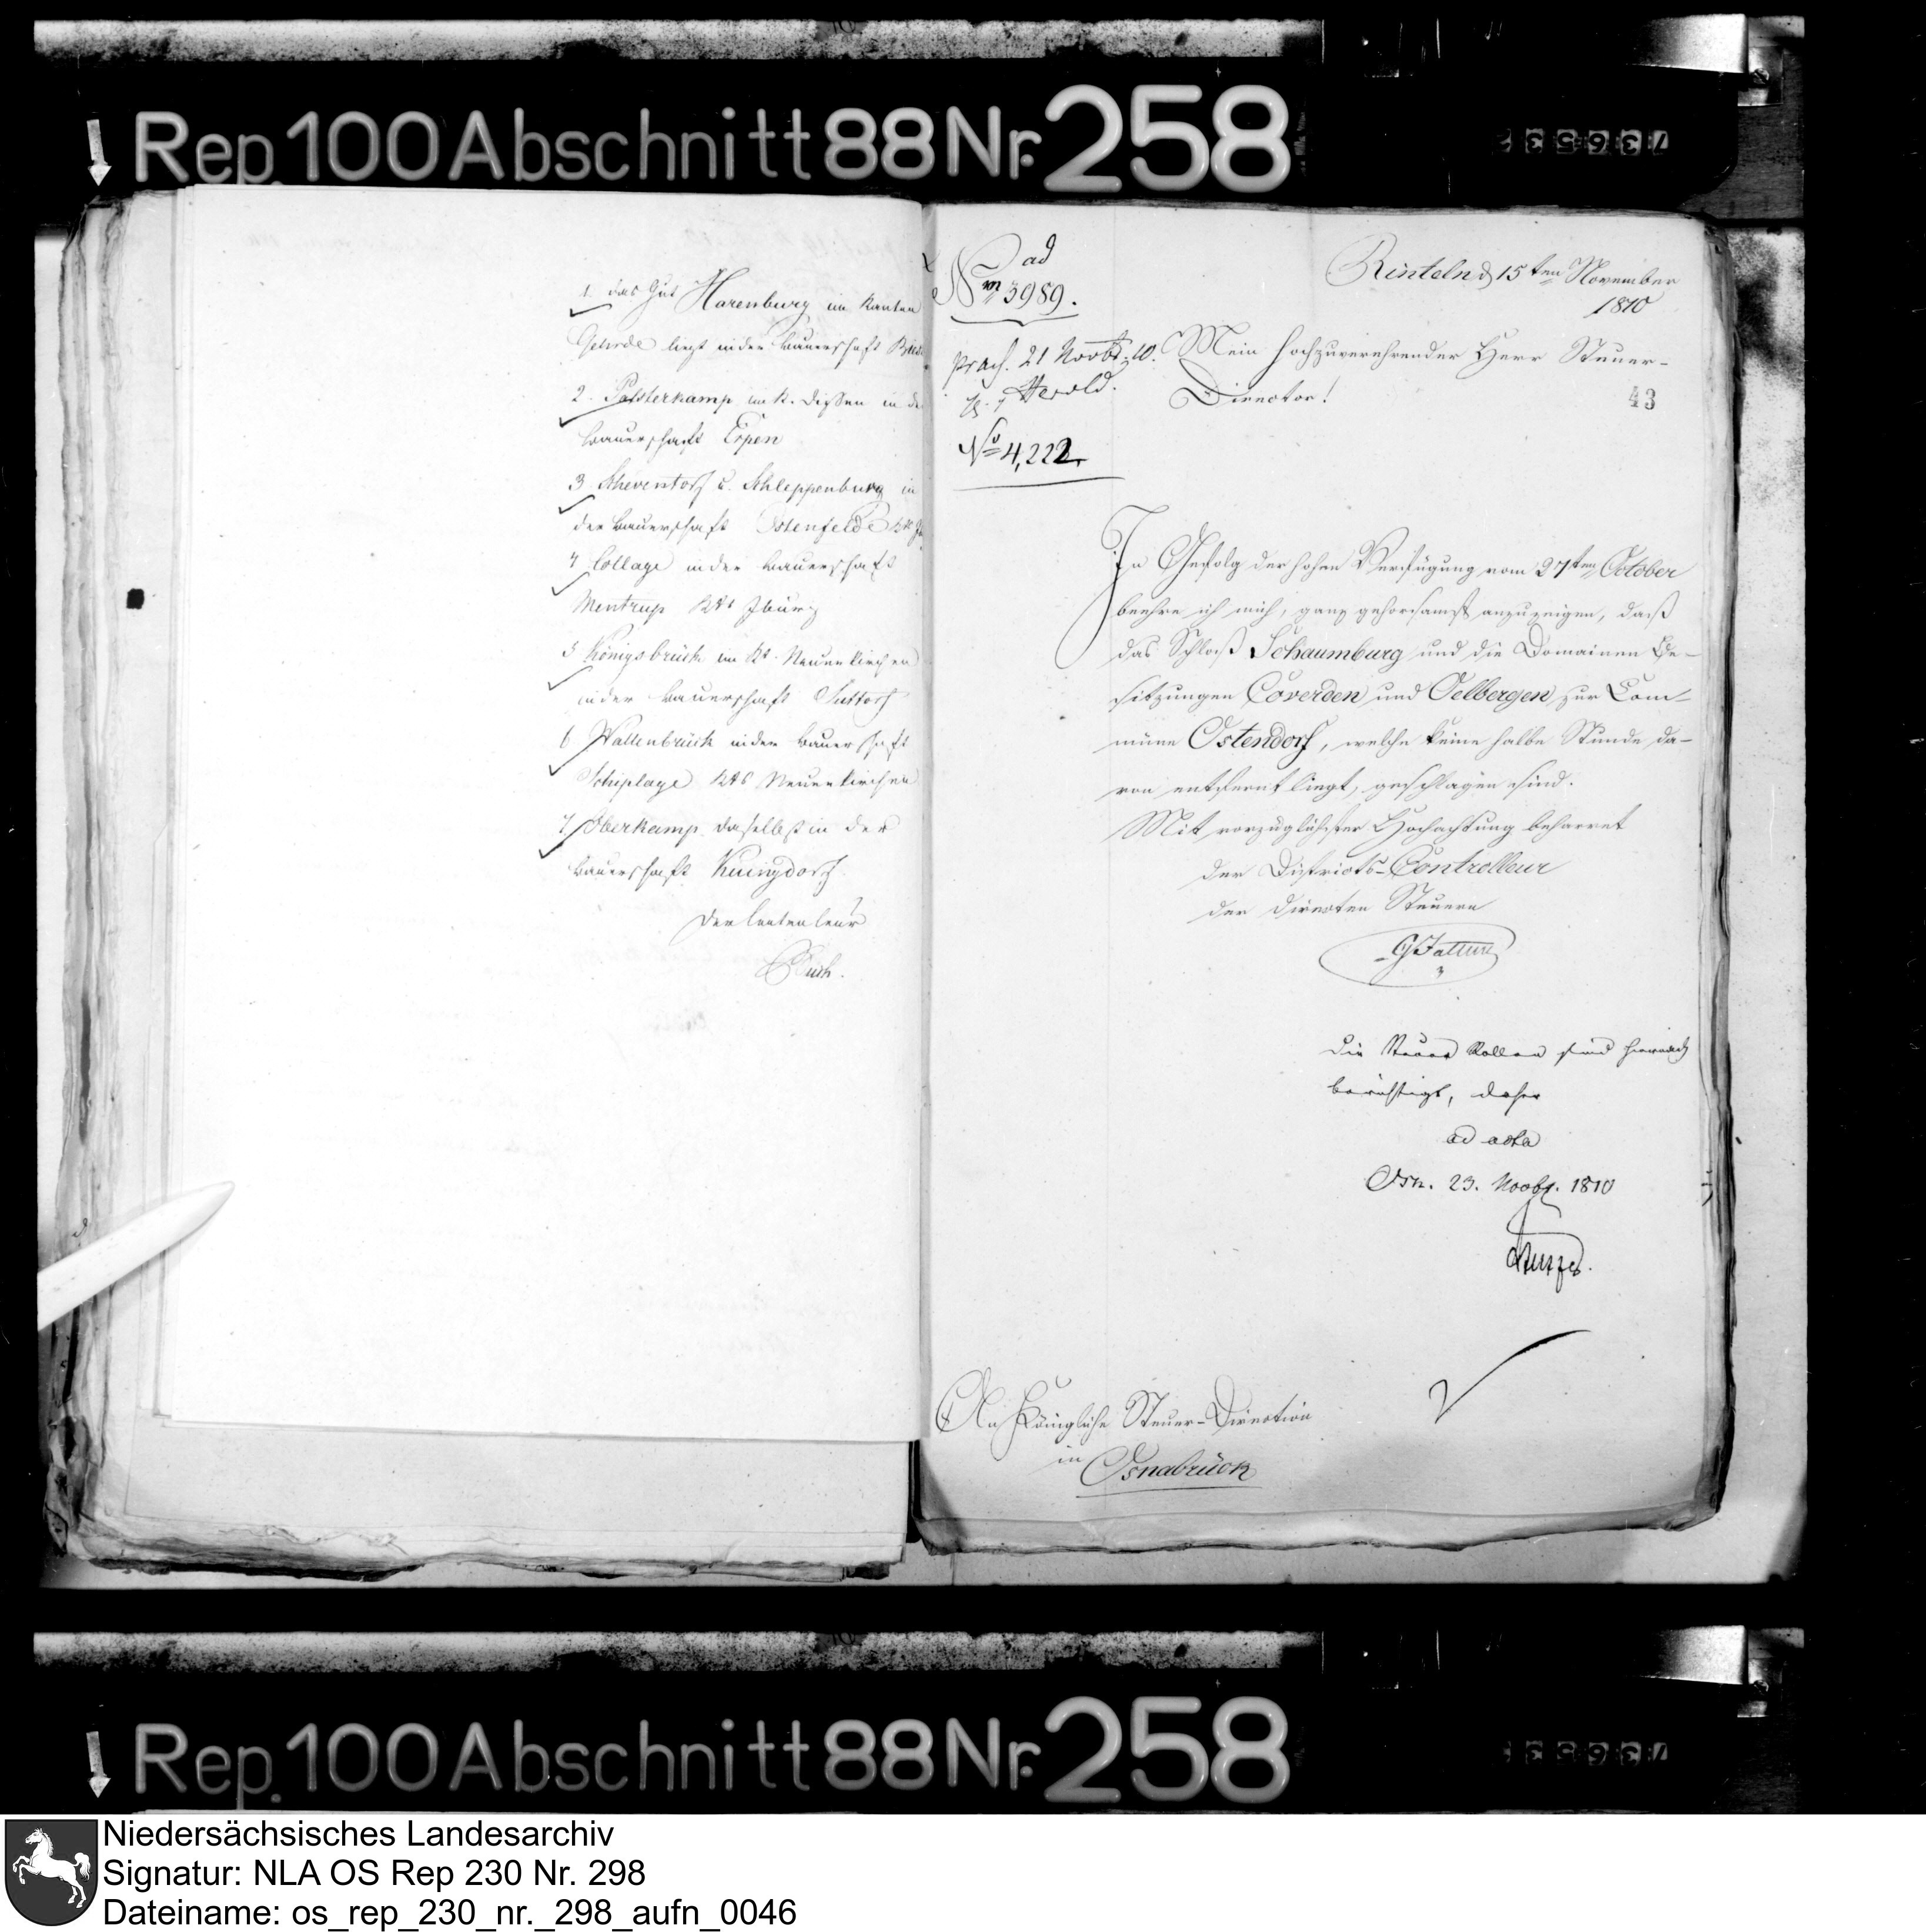 Rep. 100 Abschnitt 88 Nr. 258
1. das Gut Harenburg im Kanton
Gehrde liegt in der Bauerschaft
2. Palsterkamp im K. Dissen in der
Bauerschaft Erpen
3 Scheventorf u. Schleppenburg in
der Bauerschaft Ostenfelde
4 Collage in der Bauerschaft
Mentrup Kts Iburg
5 Königsbrück im Kt. Neuenkirchen
in der Bauerschaft Suttorf
6 Wallenbrück in der Bauerschaft
Schiplage Kts Neuenkirchen
7 Oberkamp daselbst in der
Bauerschaft Küingdorf.
Der Controleur
ad
No 3989.
praes. 21 Novbr. 10.
Herold.
No 4,222.
Rinteln d 15ten November
1810
Mein hochzuverehrender Herr Steuer-
Director!
43
In Gefolg der hohen Verfügung vom 27ten October
beehre ich mich, ganz gehorsamst anzuzeigen, daß
das Schloß Schaumburg und die Domainen Be-
sitzungen Coverden und Oelbergen zur Com-
müne Ostendorf, welche keine halbe Stunde da-
von entfernt liegt, geschlagen sind.
Mit vorzüglichster Hochachtung beharret
der Districts-Controlleur
der directen Steuern
Die Steuer Rollen sind hiernach
berichtigt, daher
ad acta
Osn. 23. Novbr. 1810
An Königliche Steuer-Direction
in
Osnabrück
Rep. 100 Abschnitt 88 Nr. 258
Niedersächsisches Landesarchiv
Signatur: NLA OS Rep 230 Nr. 298
Dateiname: os_rep_230_nr._298_aufn_0046